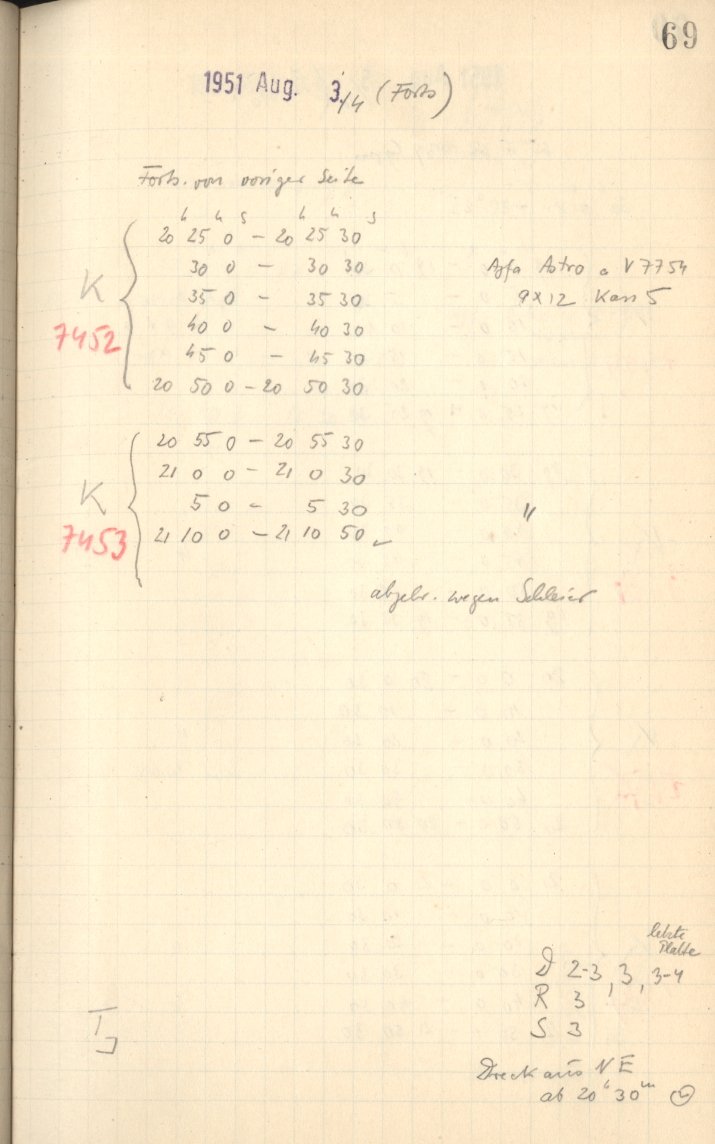 69
1951 Aug. 3./4 (Forts)
Forts. von voriger Seite
h h s h h s
20 25 0 – 20 25 30
30 0 – 30 30
Agfa Astro a V7754
K
35 0 – 35 30
9x12 Kass 5
7452
40 0 – 40 30
45 0 – 45 30
20 50 0 – 20 50 30
20 55 0 – 20 55 30
21 0 0 – 21 0 30
K
5 0 – 5 30
"
7453
21 10 0 – 21 10 50
abgebr. wegen Schleier
letzte
Platte
D 2-3, 3, 3-4
R 3
S 3
Dreck aus NE
ab 20h 30m